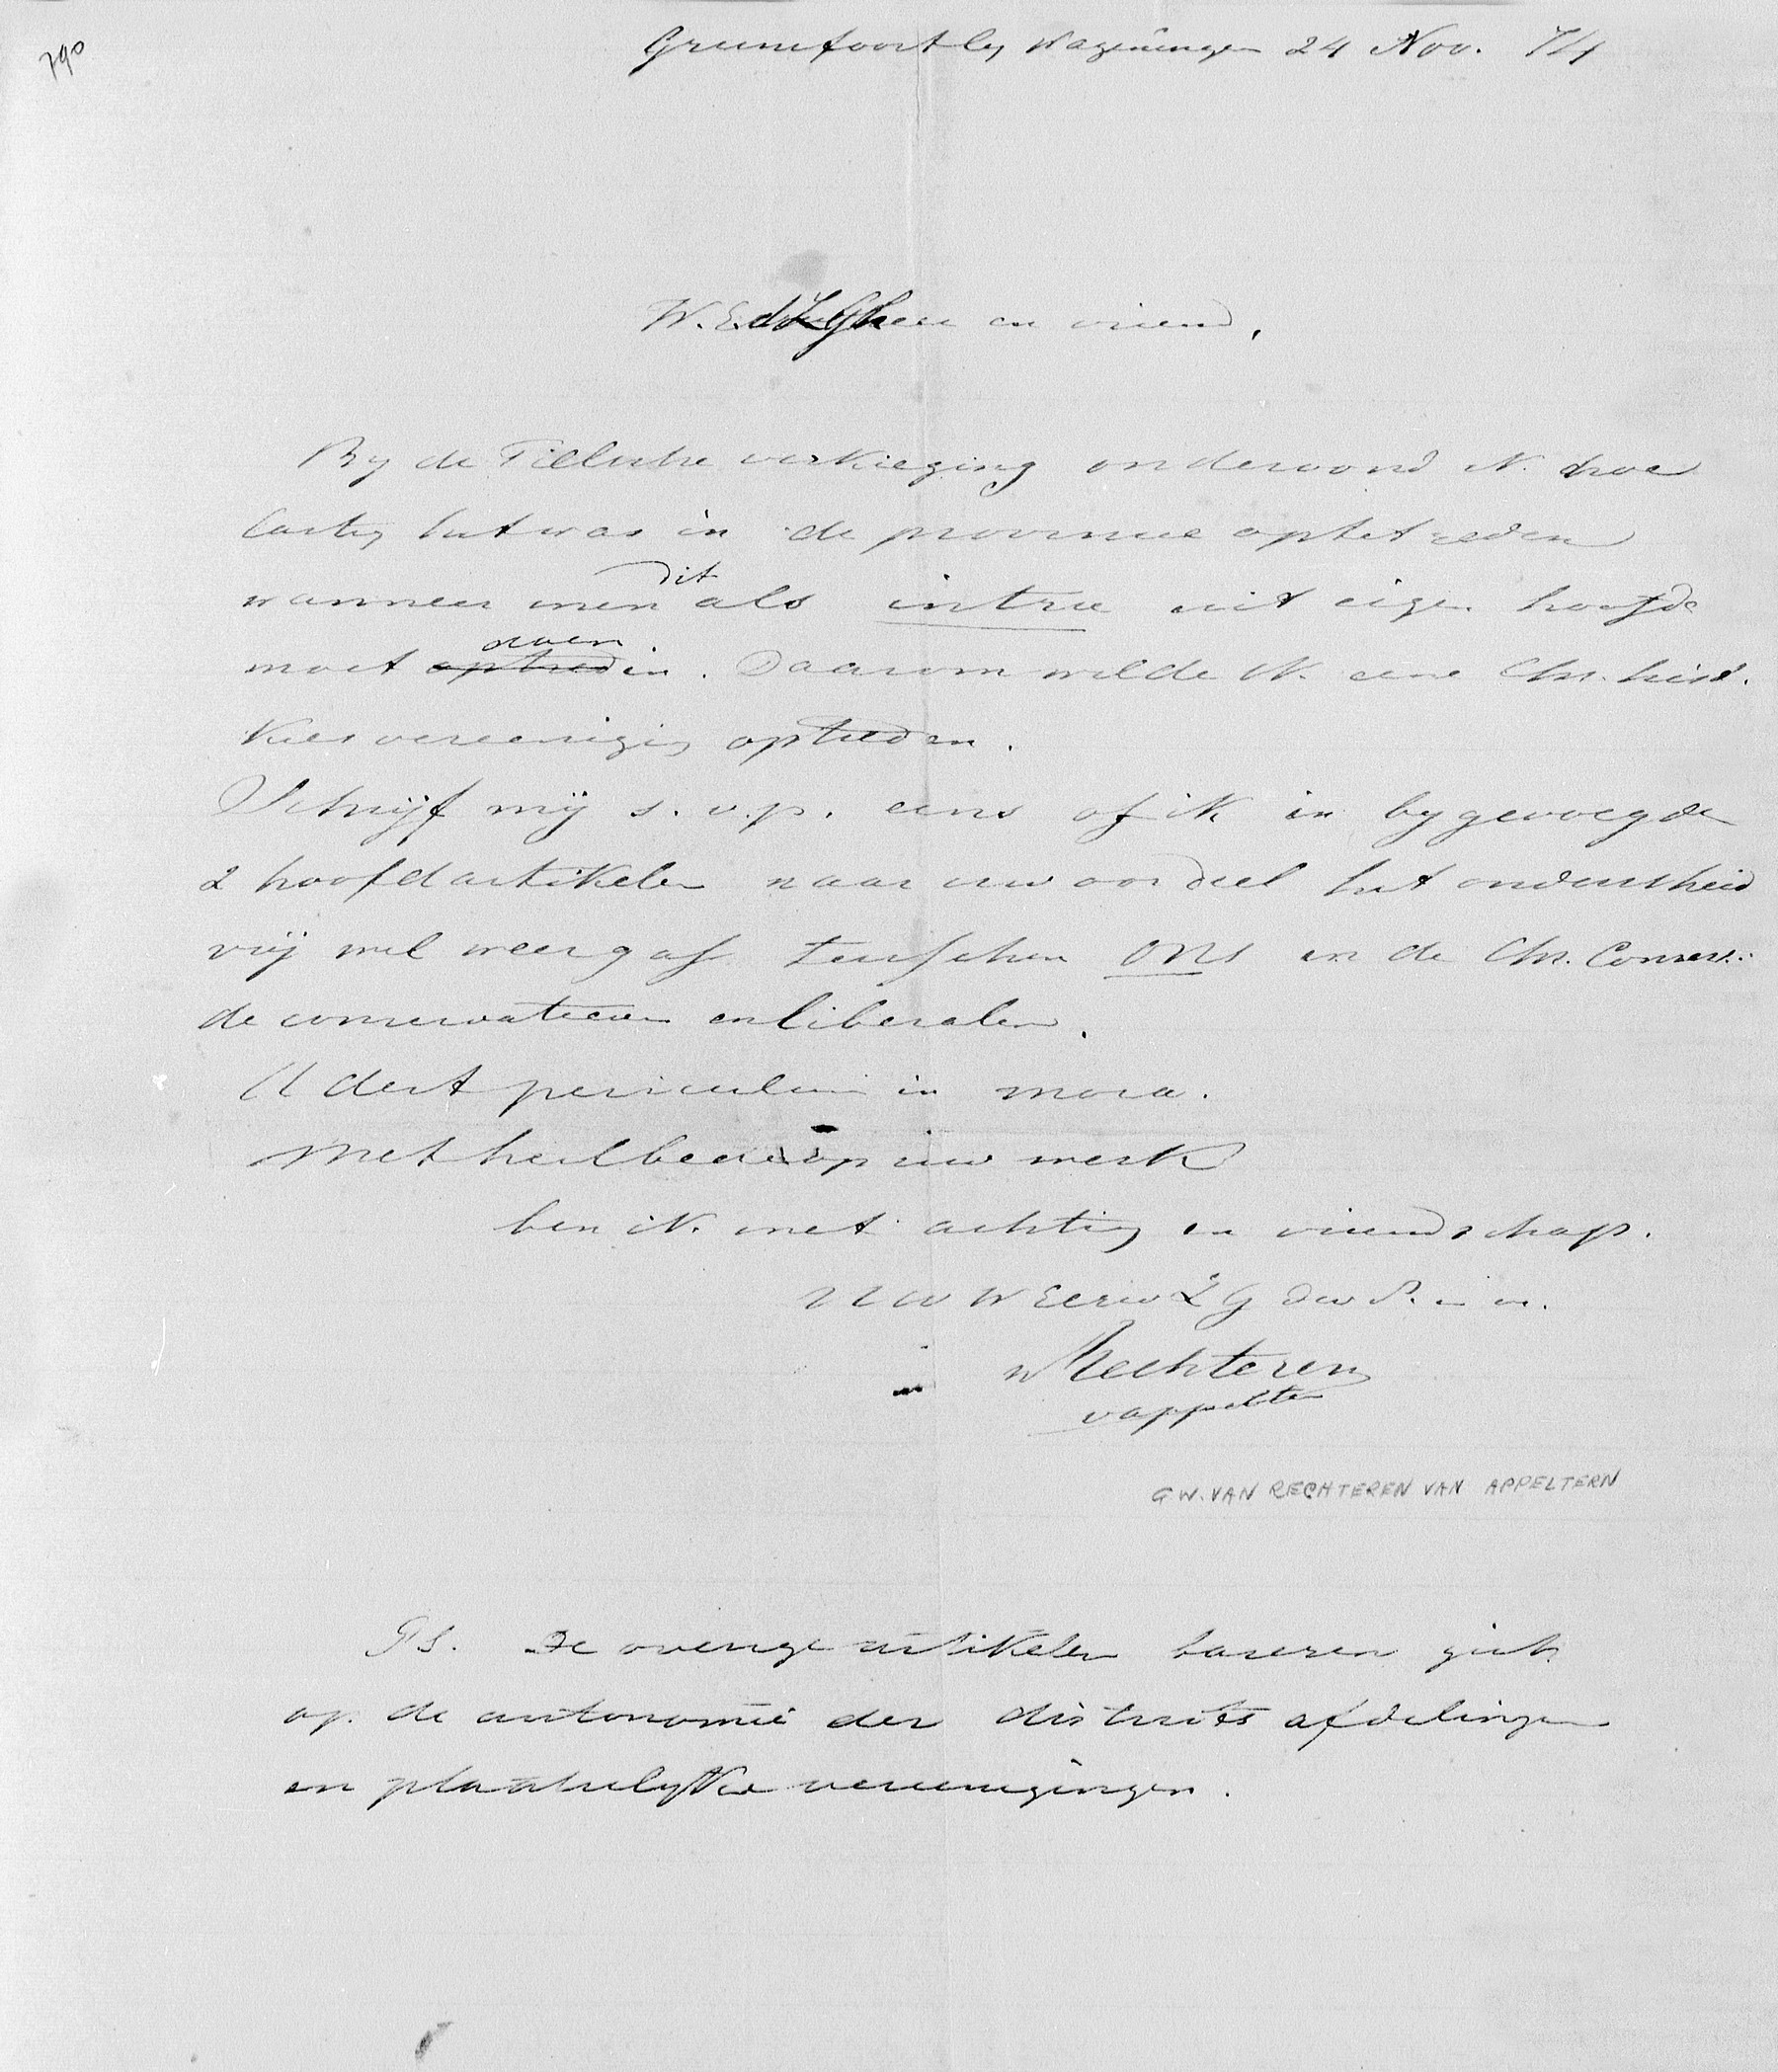 790
Grunsfoort by Wageningen 24 Nov. 74
W. Ed. Z G heer en vriend,
By de Tielsche verkiezing ondervond ik hoe
lastig het was in de provincie optetreden
wanneer men dit als intru uit eigen hoofde
moet doen. Daarom wilde ik eene Chr. hist.
Kiesvereeniging optreden.
Schrijf mij s.v.p. eens of ik in bygevoegde
2 hoofdartikelen naar uw oordeel het onderscheid
vrij wel weergaf tusschen ons en de Chr. Conserv.
de conservatieven en liberalen.
periculum in mora.
Met heilbede op uw werk
ben ik met achting en vriendschap.
UW W Eerw Z G dw D. en vr.
v Rechteren
v appeltern
G W. VAN RECHTEREN VAN APPELTERN
PS. De overige artikelen baseren zich
op de autonomie der districts afdelingen
en plaatselyke vereenigingen.